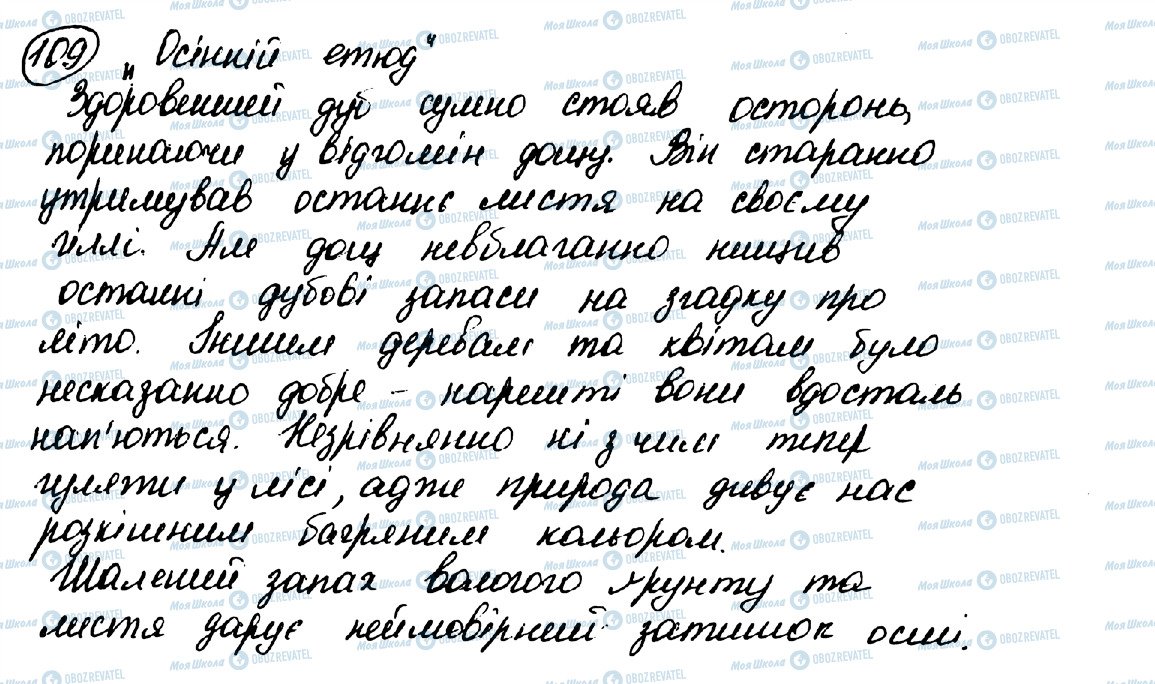 109 "Осінній етюд"
Здоровенний дуб сумно стояв осторонь,
поринаючи у відгомін дощу. Він старанно
утримував останнє листя на своєму
гіллі. Але дощ невблаганно нищив
останні дубові запаси на згадку про
літо. Іншим деревам та квітам було
несказанно добре – нарешті вони вдосталь
нап'ються. Незрівнянно ні з чим тепер
гуляти у лісі, адже природа дивує нас
розкішним багряним кольором.
Шалений запах вологого ґрунту та
листя дарує неймовірний затишок осені.